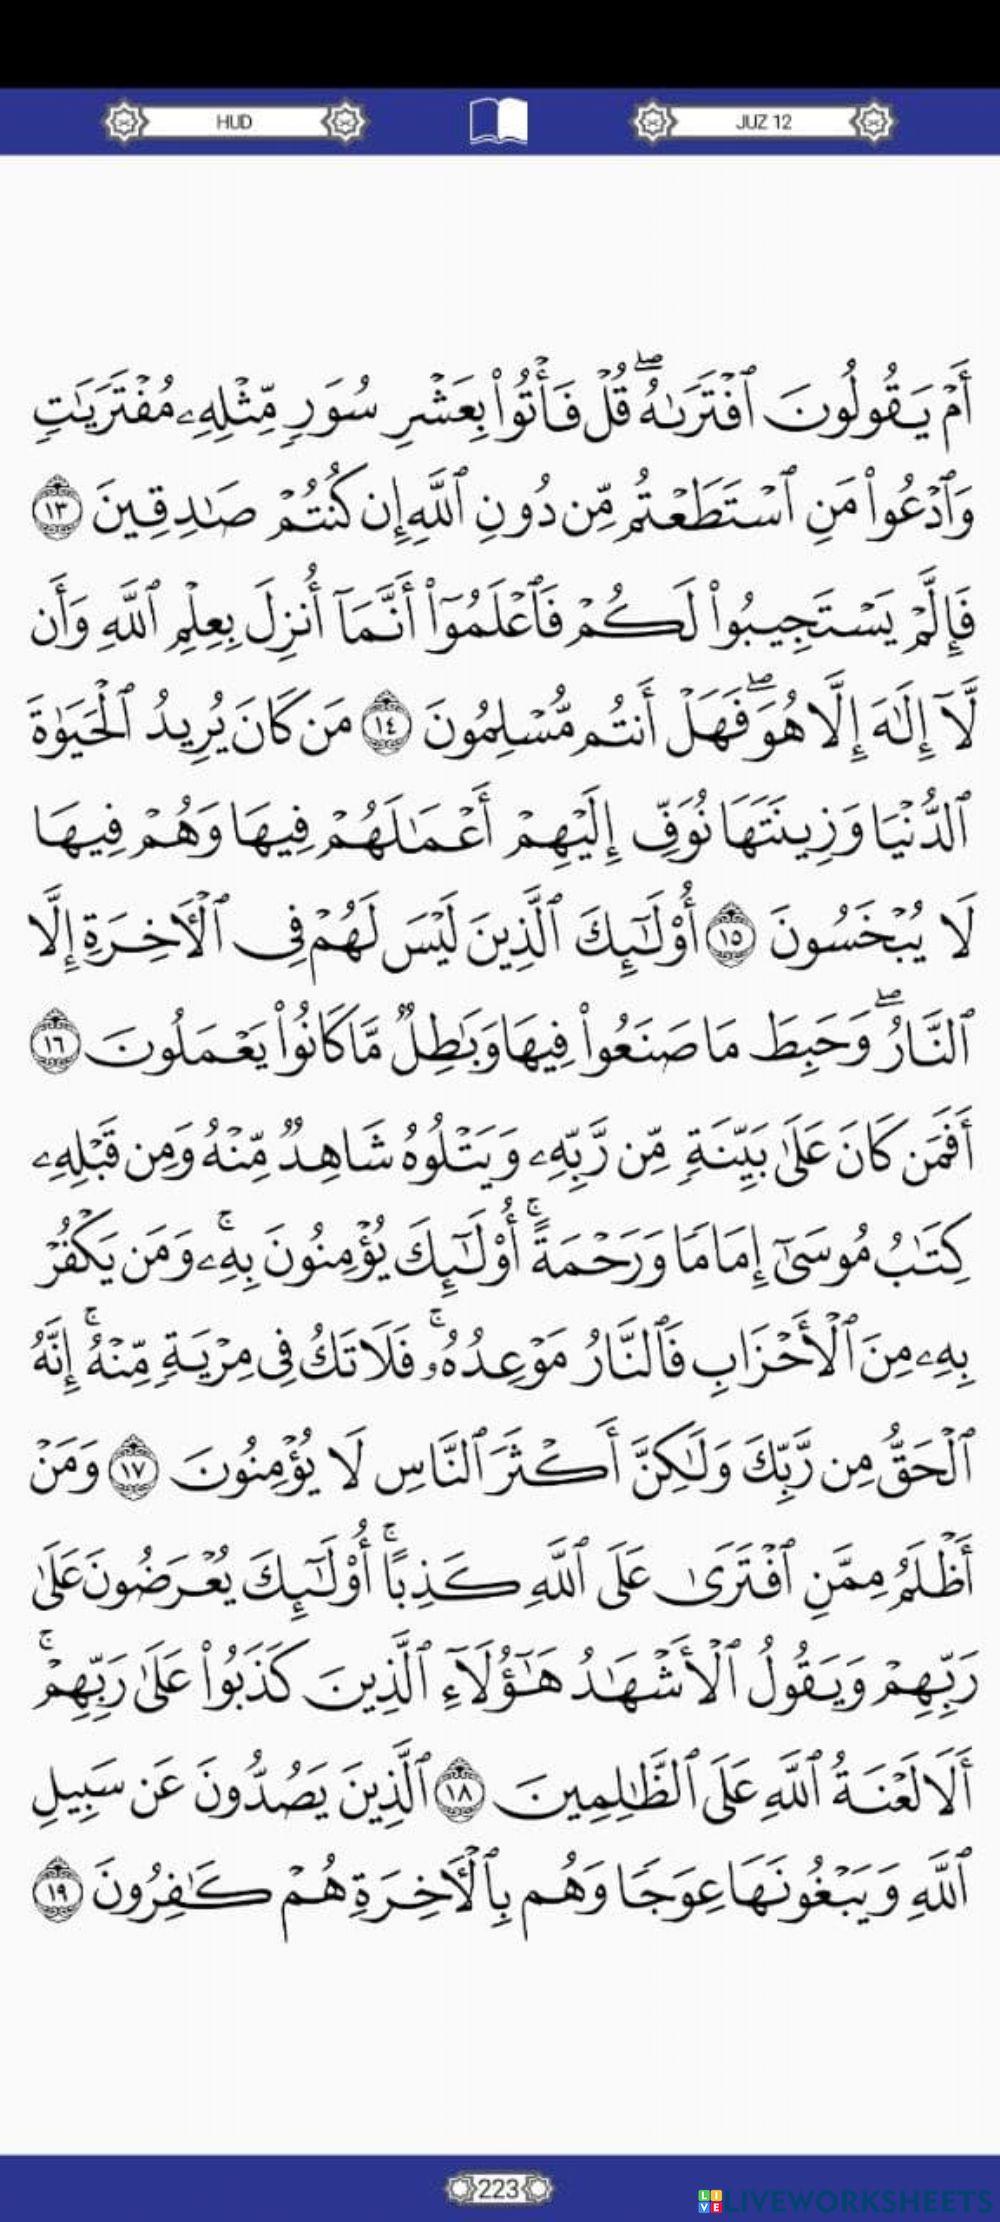 HUD
JUZ 12
أَمْ يَقُولُونَ ٱفْتَرَىٰهُ ۖ قُلْ فَأْتُوا۟ بِعَشْرِ سُوَرٍ مِّثْلِهِۦ مُفْتَرَيَٰتٍ
وَٱدْعُوا۟ مَنِ ٱسْتَطَعْتُم مِّن دُونِ ٱللَّهِ إِن كُنتُمْ صَٰدِقِينَ ١٣
فَإِلَّمْ يَسْتَجِيبُوا۟ لَكُمْ فَٱعْلَمُوٓا۟ أَنَّمَآ أُنزِلَ بِعِلْمِ ٱللَّهِ وَأَن
لَّآ إِلَٰهَ إِلَّا هُوَ ۖ فَهَلْ أَنتُم مُّسْلِمُونَ ١٤ مَن كَانَ يُرِيدُ ٱلْحَيَوٰةَ
ٱلدُّنْيَا وَزِينَتَهَا نُوَفِّ إِلَيْهِمْ أَعْمَٰلَهُمْ فِيهَا وَهُمْ فِيهَا
لَا يُبْخَسُونَ ١٥ أُو۟لَٰٓئِكَ ٱلَّذِينَ لَيْسَ لَهُمْ فِى ٱلْءَاخِرَةِ إِلَّا
ٱلنَّارُ ۖ وَحَبِطَ مَا صَنَعُوا۟ فِيهَا وَبَٰطِلٌ مَّا كَانُوا۟ يَعْمَلُونَ ١٦
أَفَمَن كَانَ عَلَىٰ بَيِّنَةٍ مِّن رَّبِّهِۦ وَيَتْلُوهُ شَاهِدٌ مِّنْهُ وَمِن قَبْلِهِۦ
كِتَٰبُ مُوسَىٰٓ إِمَامًا وَرَحْمَةً ۚ أُو۟لَٰٓئِكَ يُؤْمِنُونَ بِهِۦ ۚ وَمَن يَكْفُرْ
بِهِۦ مِنَ ٱلْأَحْزَابِ فَٱلنَّارُ مَوْعِدُهُۥ ۚ فَلَا تَكُ فِى مِرْيَةٍ مِّنْهُ ۚ إِنَّهُ
ٱلْحَقُّ مِن رَّبِّكَ وَلَٰكِنَّ أَكْثَرَ ٱلنَّاسِ لَا يُؤْمِنُونَ ١٧ وَمَنْ
أَظْلَمُ مِمَّنِ ٱفْتَرَىٰ عَلَى ٱللَّهِ كَذِبًا ۚ أُو۟لَٰٓئِكَ يُعْرَضُونَ عَلَىٰ
رَبِّهِمْ وَيَقُولُ ٱلْأَشْهَٰدُ هَٰٓؤُلَآءِ ٱلَّذِينَ كَذَبُوا۟ عَلَىٰ رَبِّهِمْ ۚ
أَلَا لَعْنَةُ ٱللَّهِ عَلَى ٱلظَّٰلِمِينَ ١٨ ٱلَّذِينَ يَصُدُّونَ عَن سَبِيلِ
ٱللَّهِ وَيَبْغُونَهَا عِوَجًا وَهُم بِٱلْءَاخِرَةِ هُمْ كَٰفِرُونَ ١٩
223
LIVEWORKSHEETS